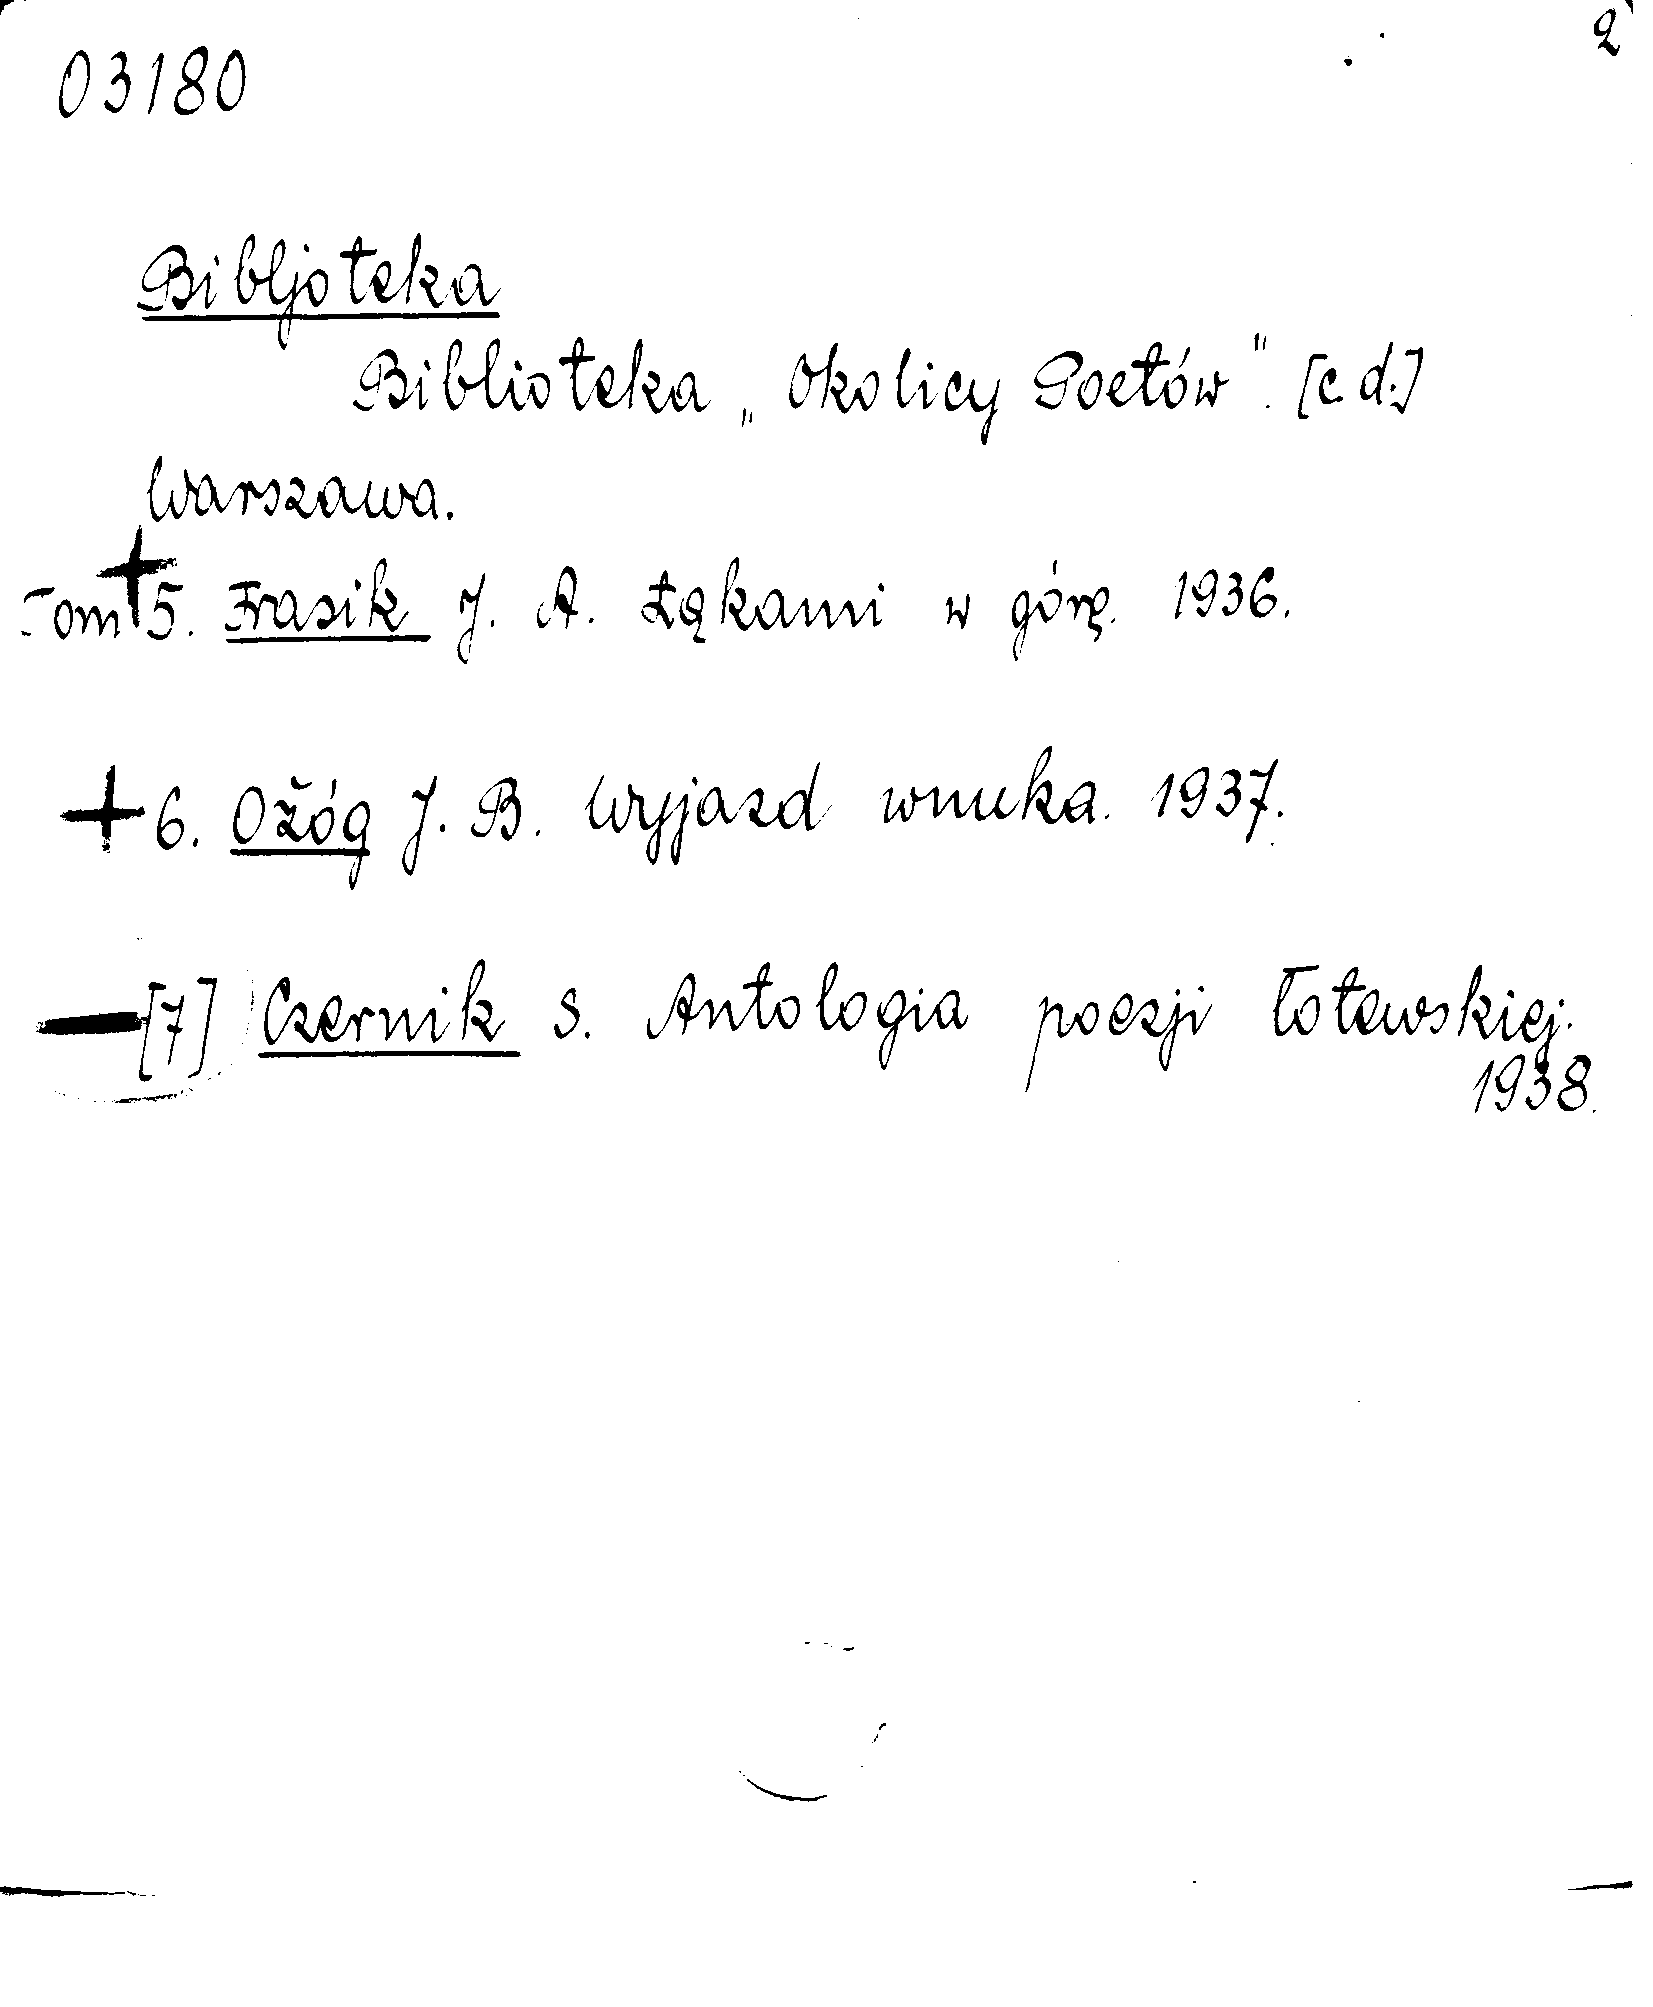 2
03180
Bibljoteka
Biblioteka „Okolicy Poetów". [c.d.]
Warszawa.
Tom + 5. Frasik J. A. Łąkami w górę. 1936.
+ 6. Ożóg J. B. Wyjazd wnuka. 1937.
— [7] Czernik S. Antologia poezji łotewskiej.
1938.